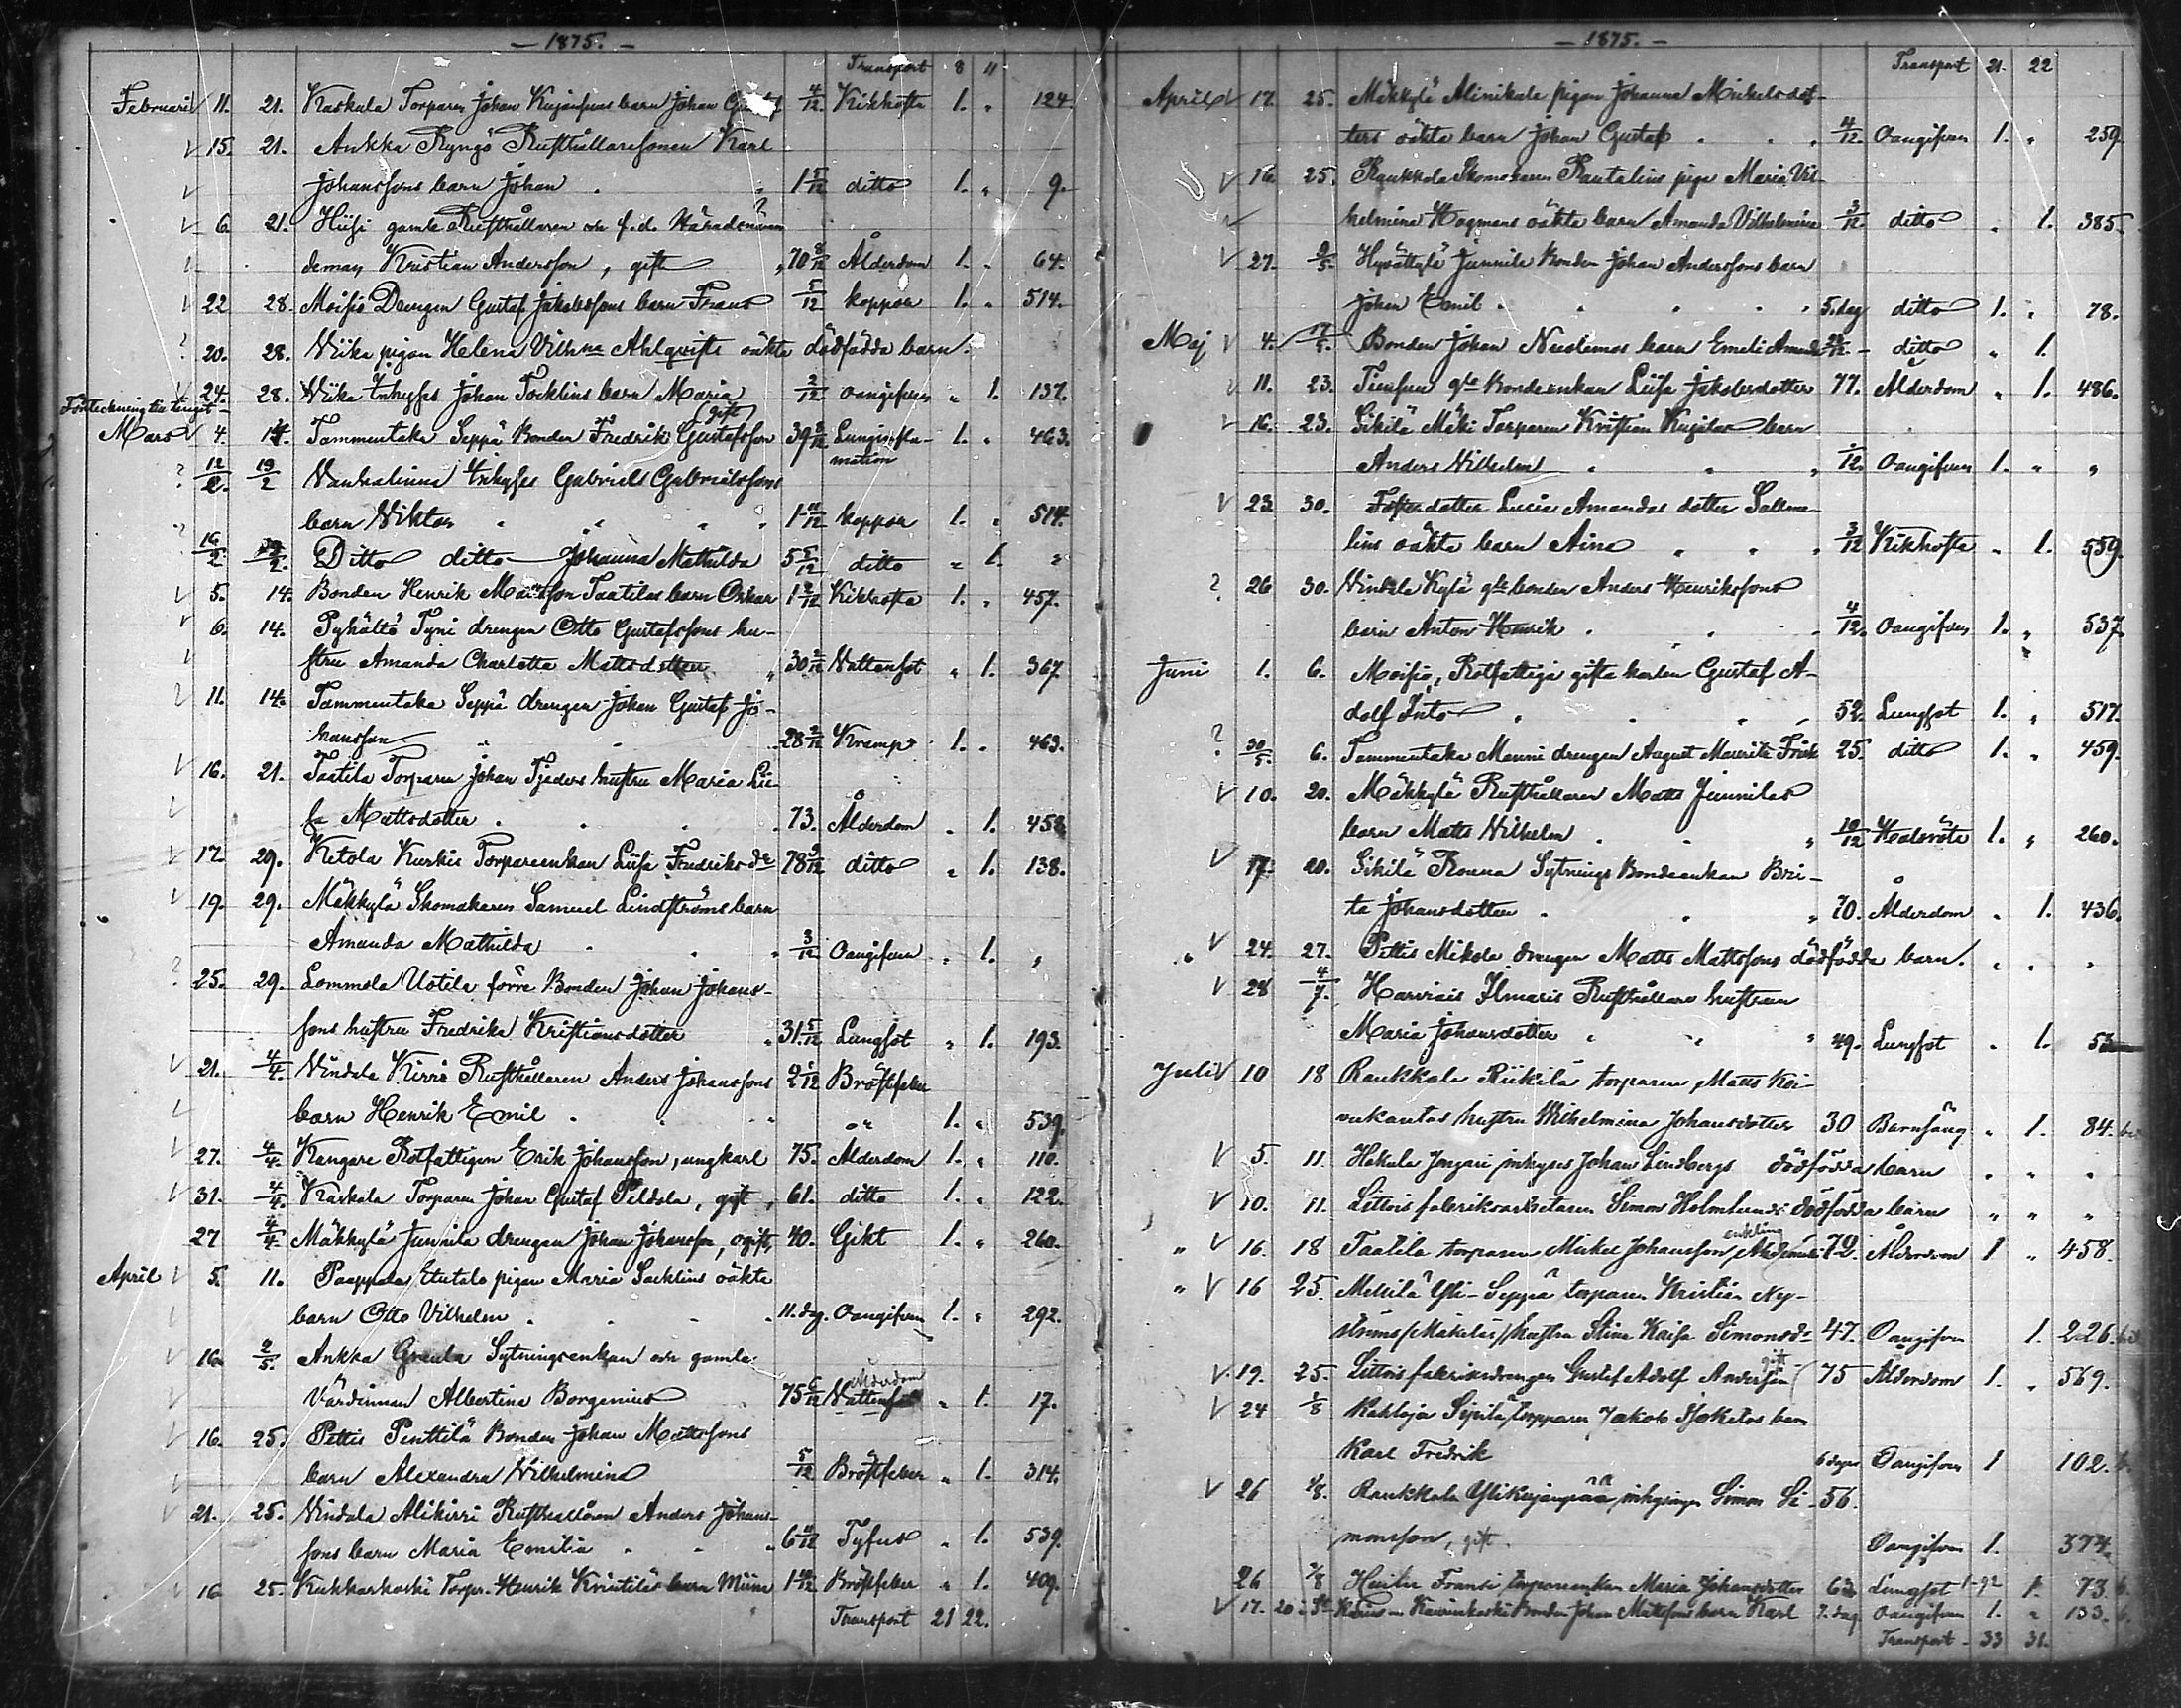 — 1875. —
Transport 8 11
Februarii 11. 21. Kaskala Torparen Johan barn Johan Gustaf 4/12 Kikhosta 1. " 124.
15. 21. Ankka Ryngö Rusthållaresonen Karl
Johanssons barn Johan 1 5/12 ditto 1. " 9.
6. 21. Hiisi gamle Rusthållaren och f.d. Häradsnämn
deman Kristian Andersson, gift 70 8/12 Ålderdom 1. " 64.
22 28. Moisio Drengen Gustaf Jakobssons barn Frans 5/12 koppor 1. " 514.
? 20. 28. Wiika pigan Helena Vilhna Ahlqvists oäkta dödfödda barn.
24. 28. Wiika Inhyses Johan Tocklins barn Maria 2/12 oangifven " 1. 137.
Förteckning till tinget
Mars 4. 14. Tammentaka Seppä Bonden Fredrik Gustafsson (gift) 39 8/12 Lunginfla- 1. " 463.
mation
? 12/2. 19/2 Vanhalinna Inhyses Gabriel Gabrielssons
barn Viktor 1 11/12 koppor 1. " 514.
? 16/2 Ditto ditto Johanna Mathilda 5 5/12 ditto " 1. "
5. 14. Bonden Henrik Taatilas barn Oskar 1 2/12 Kikhosta 1. " 457.
6. 14. Pyhältö Tyni drengen Otto Gustafssons hu-
stru Amanda Charlotta Mattsdotter 30 2/12 Vattensot " 1. 367
? 11. 14. Tammentaka Seppä drengen Johan Gustaf Jo-
hansson 28 2/12 Kramp 1. " 463.
16. 21. Taatila Torparen Johan Tjeders hustru Maria Lii-
sa Mattsdotter 73. Ålderdom " 1. 458.
17. 29. Ketola Kurkis Torpareenkan Liisa Fredriksdr 78 9/12 ditto " 1. 138.
19. 29. Mäkkylä Skomakaren Samuel Lindströms barn
Amanda Mathilda 3/12 Oangifven " 1. "
? 25. 29. Lemmola Uotila förre Bonden Johan Johans-
sons hustru Fredrika Kristiansdotter 31 5/12 Lungsot " 1. 193.
21. 4/4. Vindala Kirri Rusthållaren Anders Johanssons 2 1/12 Bröstfeber
barn Henrik Emil " 1. " 539.
27. 4/4 Kangare Rotfattigen Erik Johansson, ungkarl 75. Ålderdom 1. " 110.
31. 4/4. Kaskala Torparen Johan Gustaf Peldola, gift, 61. ditto 1. " 122.
27 4/4. Mäkkylä Junnila drengen Johan Johansson, ogift, 40. Gikt 1. " 260.
April 5. 11. Paappala Ylitalo pigan Maria Sacklins oäkta
barn Otto Vilhelm 11. dag. Oangifven 1. " 292.
16. 2/5. Ankka Greula Sytningsenkan och gamla
Värdinnan Albertina Borgenius 75 6/12 Vattensot Ålderdom " 1. 17.
16. 25. Pettis Penttilä Bonden Johan Mattssons
barn Alexandra Vilhelmina 5/12 Bröstfeber " 1. 314.
21. 25. Vindala Alikirri Rusthållaren Anders Johans-
sons barn Maria Emilia 6 11/12 Tyfus " 1. 539.
16 25. Kukkarkoski Torpr. Henrik barn Miina 1 10/12 Bröstfeber " 1. 409.
Transport 21 22.
— 1875. —
Transport 21. 22
April 17. 25. Mäkkylä Alinikula pigan Johanna Mickelsdot-
ters oäkta barn Johan Gustaf 4/12. Oangifven 1. " 259.
16. 25. Raukkola Skomakaren Rautalins piga Maria Vil-
helmina Hagmans oäkta barn Amanda Vilhelmina 3/12. ditto " 1. 385.
27. 2/5. Hyvättylä Junnila Bonden Johan Anderssons barn
Johan Emil 5. dag ditto 1. " 78.
Maj 4. 17/5. Bonden Johan barn Emeli Amanda ditto " 1.
11. 23. gla Bondeenkan Liisa Jakobsdotter 77. Ålderdom " 1. 486.
16. 23. Sikilä Mäki Torparen Kristian barn
Anders Vilhelm 1/12. Oangifven 1. " "
23. 30. dotter Lucia Amandas dotter Sallme-
lins oäkta barn Aina 3/12 Kikhosta " 1. 539.
? 26 30. Vindala Kylä gle bonden Anders Henrikssons
barn Anton Henrik 4/12. Oangifven 1. " 537.
Juni 1. 6. Moisio, Rotfattiga gifta karlen Gustaf A-
dolf Into 52. Lungsot 1. " 517.
? 30/5. 6. Tammentaka Manni drengen August Mauritz Frisk 25. ditto 1. " 459.
10. 20. Mäkkylä Rusthållaren Matts Junnilas
barn Matts Vilhelm 10/12 Halsröta 1. " 260.
17. 20. Sikilä Rouna Sytnings Bondeenkan Bri-
ta Johansdotter 70. Ålderdom " 1. 436.
" 24. 27. Pettis Mikola drengen Matts Mattssons dödfödda barn. " " "
28 4/7. Harvais Ilmaris Rusthållare hustrun
Maria Johansdotter 49. Lungsot " 1. 53
Juli 10 18 Raukkala Riikilä torparen Matts Koi-
vukantos hustru Wilhelmina Johansdotter 30 Barnsäng " 1. 84.
5. 11. Hakula inhyses Johan Lindbergs dödfödda barn " " "
10. 11. Littois fabriksarbetaren Simon Holmlunds dödfödda barn " " "
" 16. 18 Taatila torparen Mickel Johansson, enkling 72. Ålderdom 1 " 458.
" 16 25. Mellilä Yli-Seppä torparen Kristian Ny-
ströms hustru Stina Kaisa Simonsdr 47. Oangifven 1. 226.
19. 25. Littois fabriksdrengen Gustaf Adolf Andersson gift 75 Ålderdom 1. " 569.
24 1/8 Kahloja Sipilä, torparen Jakob barn
Karl Fredrik 6 dagar Oangifven 1 102.
26 1/8. Raukkala inhysingen Simon Si- 56.
monsson, gift. Oangifven 1. 374.
26 1/8 Fransi torpareenkan Maria Johansdotter Lungsot 1. 73
17. 20. Bonden Johan Mattssons barn Karl 7. dag Oangifven 1. " 133.
Transport - 33 31.